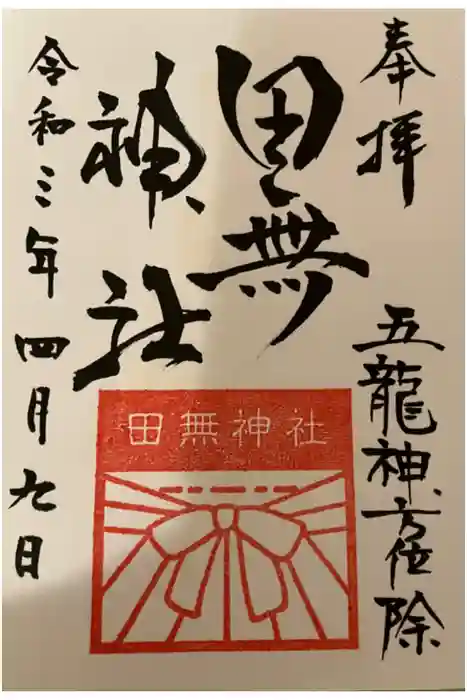 奉拝
五龍神方位除
田無
神社
田無神社
令和三年四月九日